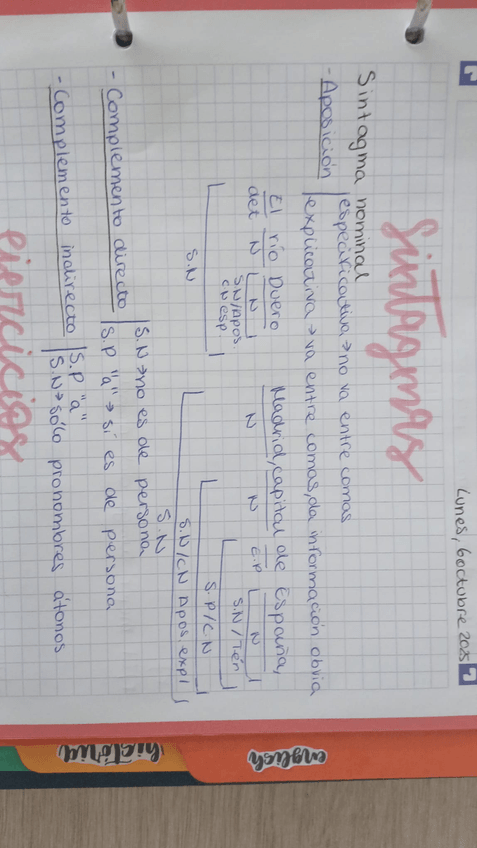 Lunes, 6 octubre 2025
sintagmas
Sintagma nominal
- Aposición | especificativa → no va entre comas
| explicativa → va entre comas, da información obvia
El río Duero
det N N
SN/Apos.
CN esp.
S.N
Madrid, capital de España,
N N E.P N
S.N/Tén
S.P/CN
S.N/CN Apos. expl
S.N
- Complemento directo | S.N → no es de persona
| S.P "a" → sí es de persona
- Complemento indirecto | S.P "a"
| S.N → sólo pronombres átonos
ejercicios
english
història